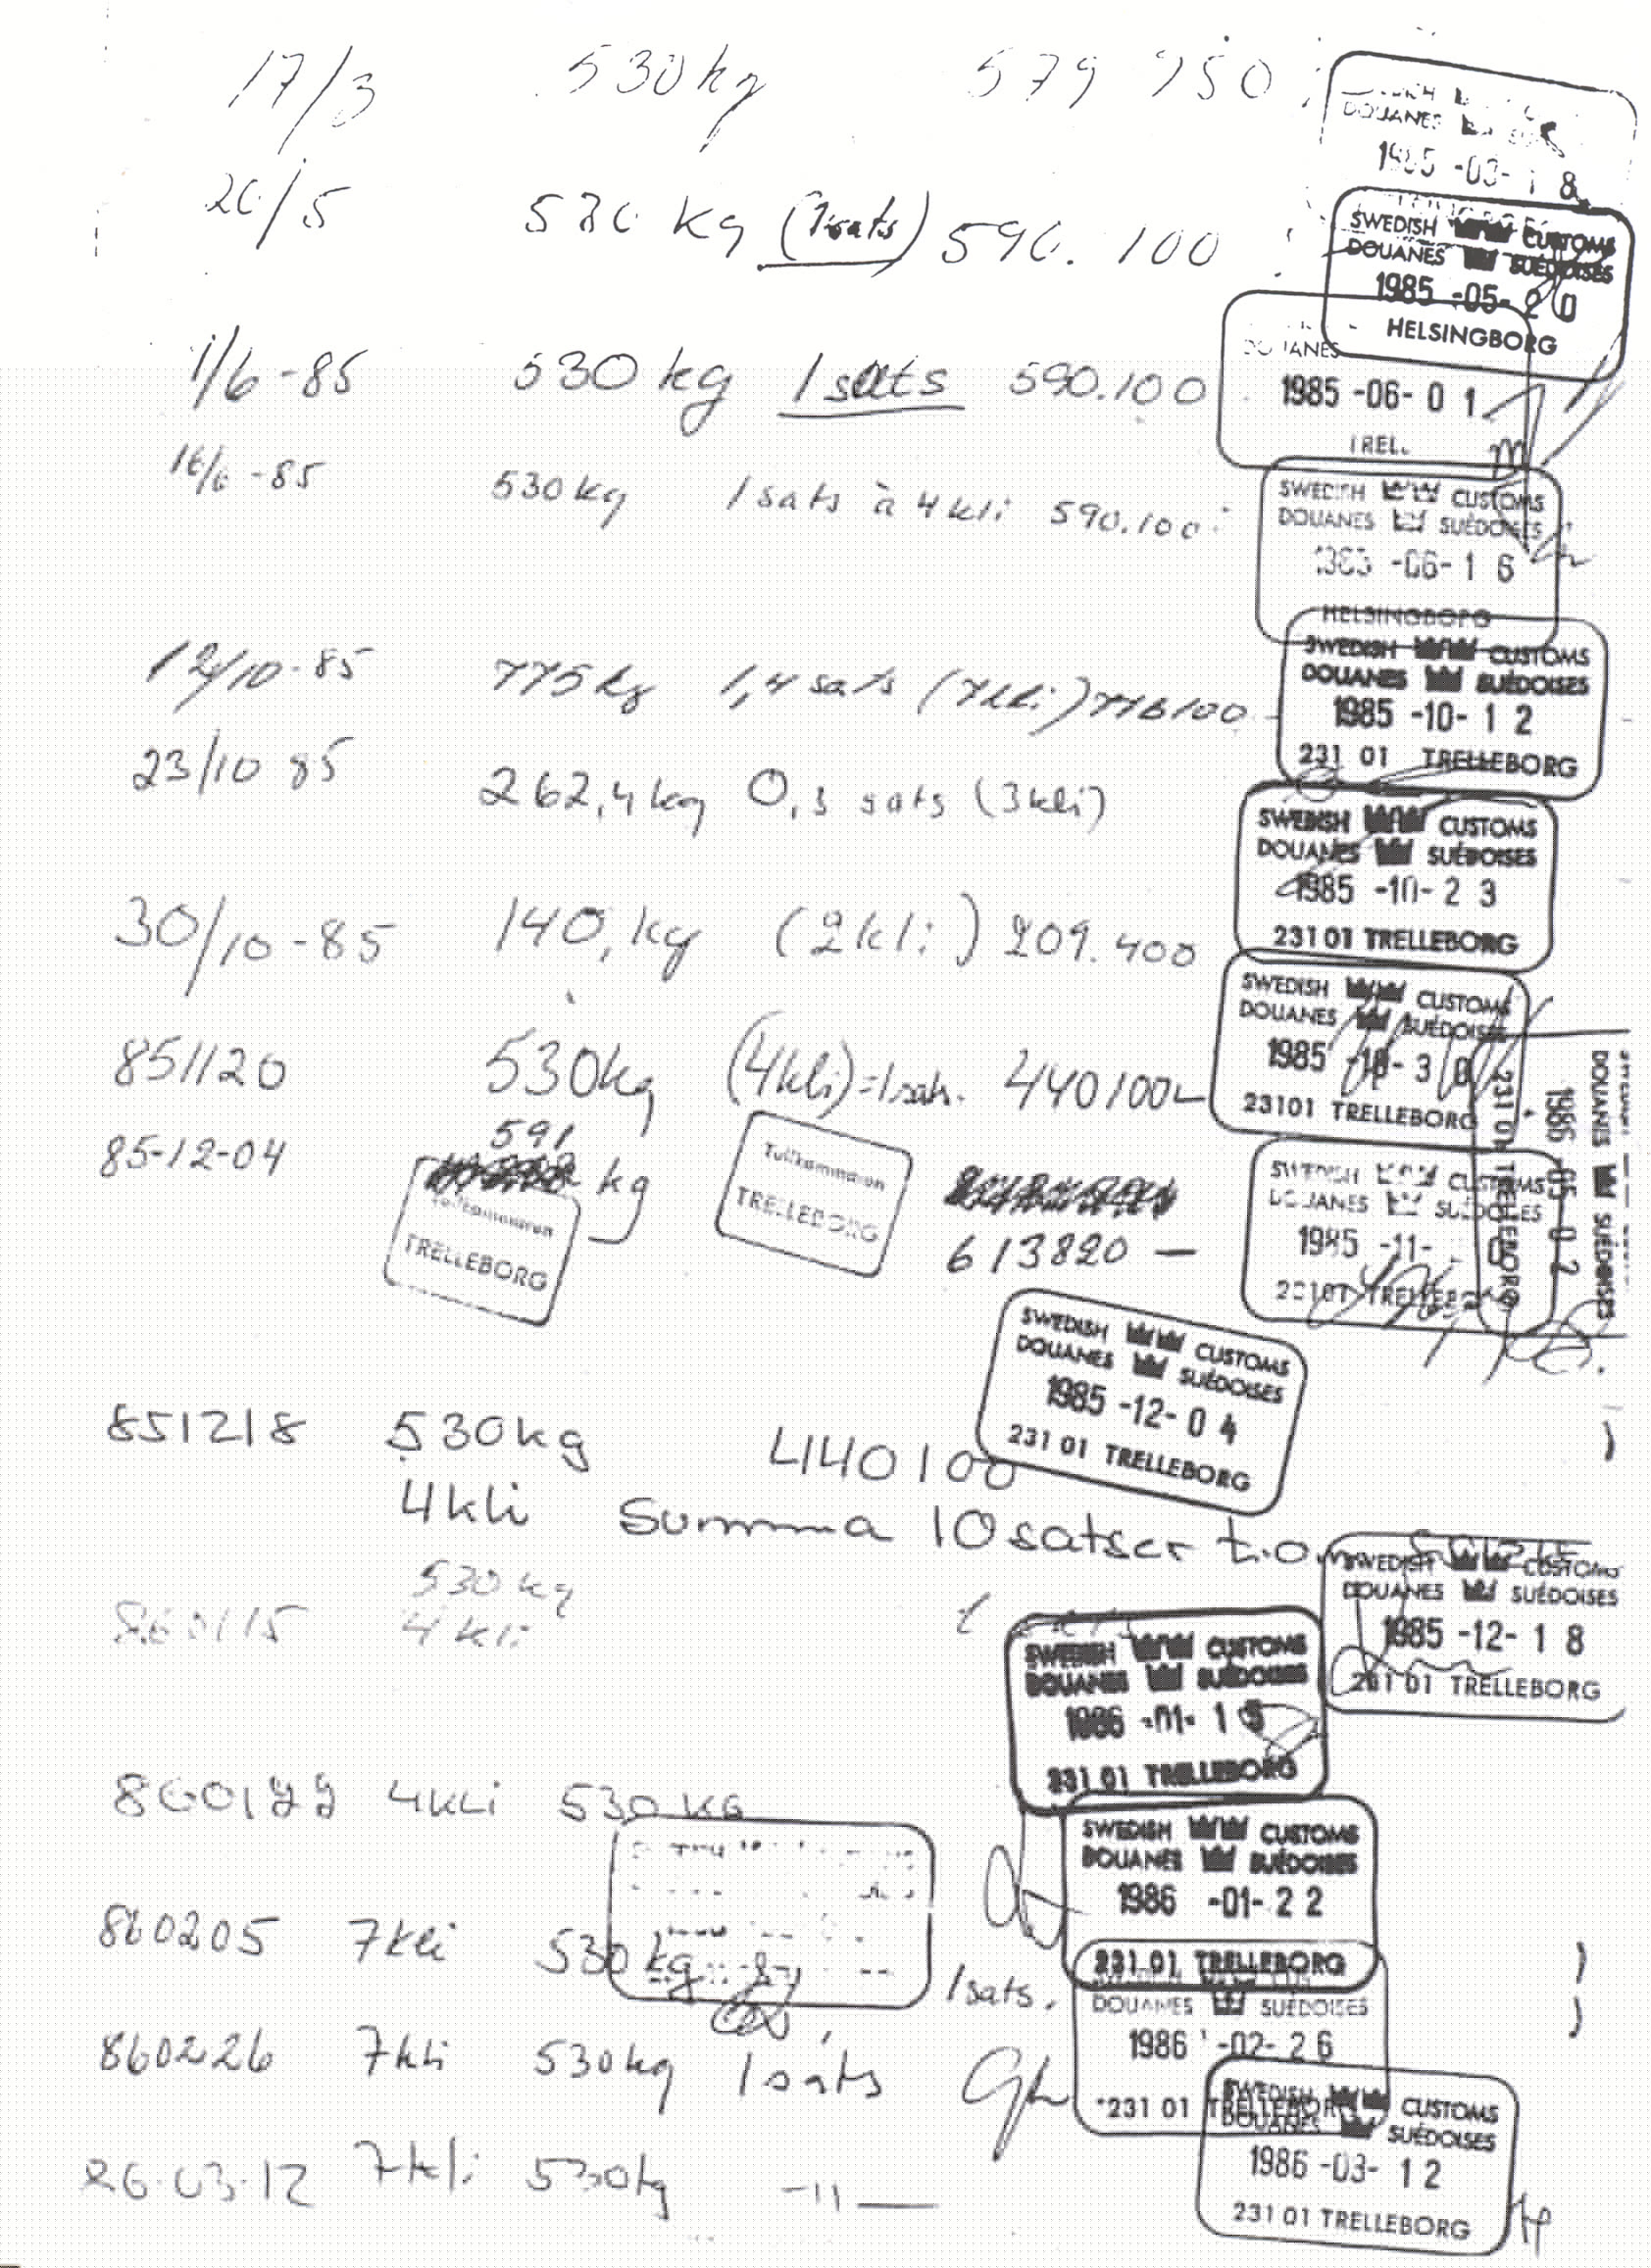 17/3 530 kg 579 950:
DOUANES
1985 -03- 1 8
20/5 530 kg (1sats) 590.100:
SWEDISH CUSTOMS
DOUANES SUÉDOISES
1985 -05- 2 0
HELSINGBORG
1/6-85 530 kg 1 sats 590.100
DOUANES
1985 -06- 0 1
TREL
16/6-85 530 kg 1 sats à 4 kli 590.100:
SWEDISH CUSTOMS
DOUANES SUÉDOISES
-06- 1 6
HELSINGBORG
12/10-85 775 kg 1,4 sats (7kli)
SWEDISH CUSTOMS
DOUANES SUÉDOISES
1985 -10- 1 2
231 01 TRELLEBORG
23/10 85 262,4 kg 0,3 sats (3kli)
SWEDISH CUSTOMS
DOUANES SUÉDOISES
1985 -10- 2 3
231 01 TRELLEBORG
30/10-85 140, kg (2kli) 209.400
SWEDISH CUSTOMS
DOUANES SUÉDOISES
1985 -10- 3 0
231 01 TRELLEBORG
851120 530kg (4kli)=1sats. 440100-
DOUANES SUÉDOISES
1986 -05- 0 2
231 01 TRELLEBORG
591
85-12-04 kg
Tullkammaren
TRELLEBORG
Tullkammaren
TRELLEBORG
613820 —
SWEDISH CUSTOMS
DOUANES SUÉDOISES
1985 -11- 0
231 01 TRELLEBORG
SWEDISH CUSTOMS
DOUANES SUÉDOISES
1985 -12- 0 4
231 01 TRELLEBORG
851218 530kg 440100
4kli Summa 10 satser t.o.m.
SWEDISH CUSTOMS
DOUANES SUÉDOISES
1985 -12- 1 8
231 01 TRELLEBORG
530 kg
860115 4 kli
SWEDISH CUSTOMS
DOUANES SUÉDOISES
1986 -01- 1 5
231 01 TRELLEBORG
860122 4kli 530 KG
SWEDISH CUSTOMS
DOUANES SUÉDOISES
1986 -01- 2 2
231 01 TRELLEBORG
860205 7kli 530 kg 1sats.
DOUANES SUÉDOISES
1986 -02- 2 6
231 01 TRELLEBORG
860226 7kli 530kg 1 sats
SWEDISH CUSTOMS
DOUANES SUÉDOISES
1986 -03- 1 2
231 01 TRELLEBORG
86.03.12 7kli 530kg -11—